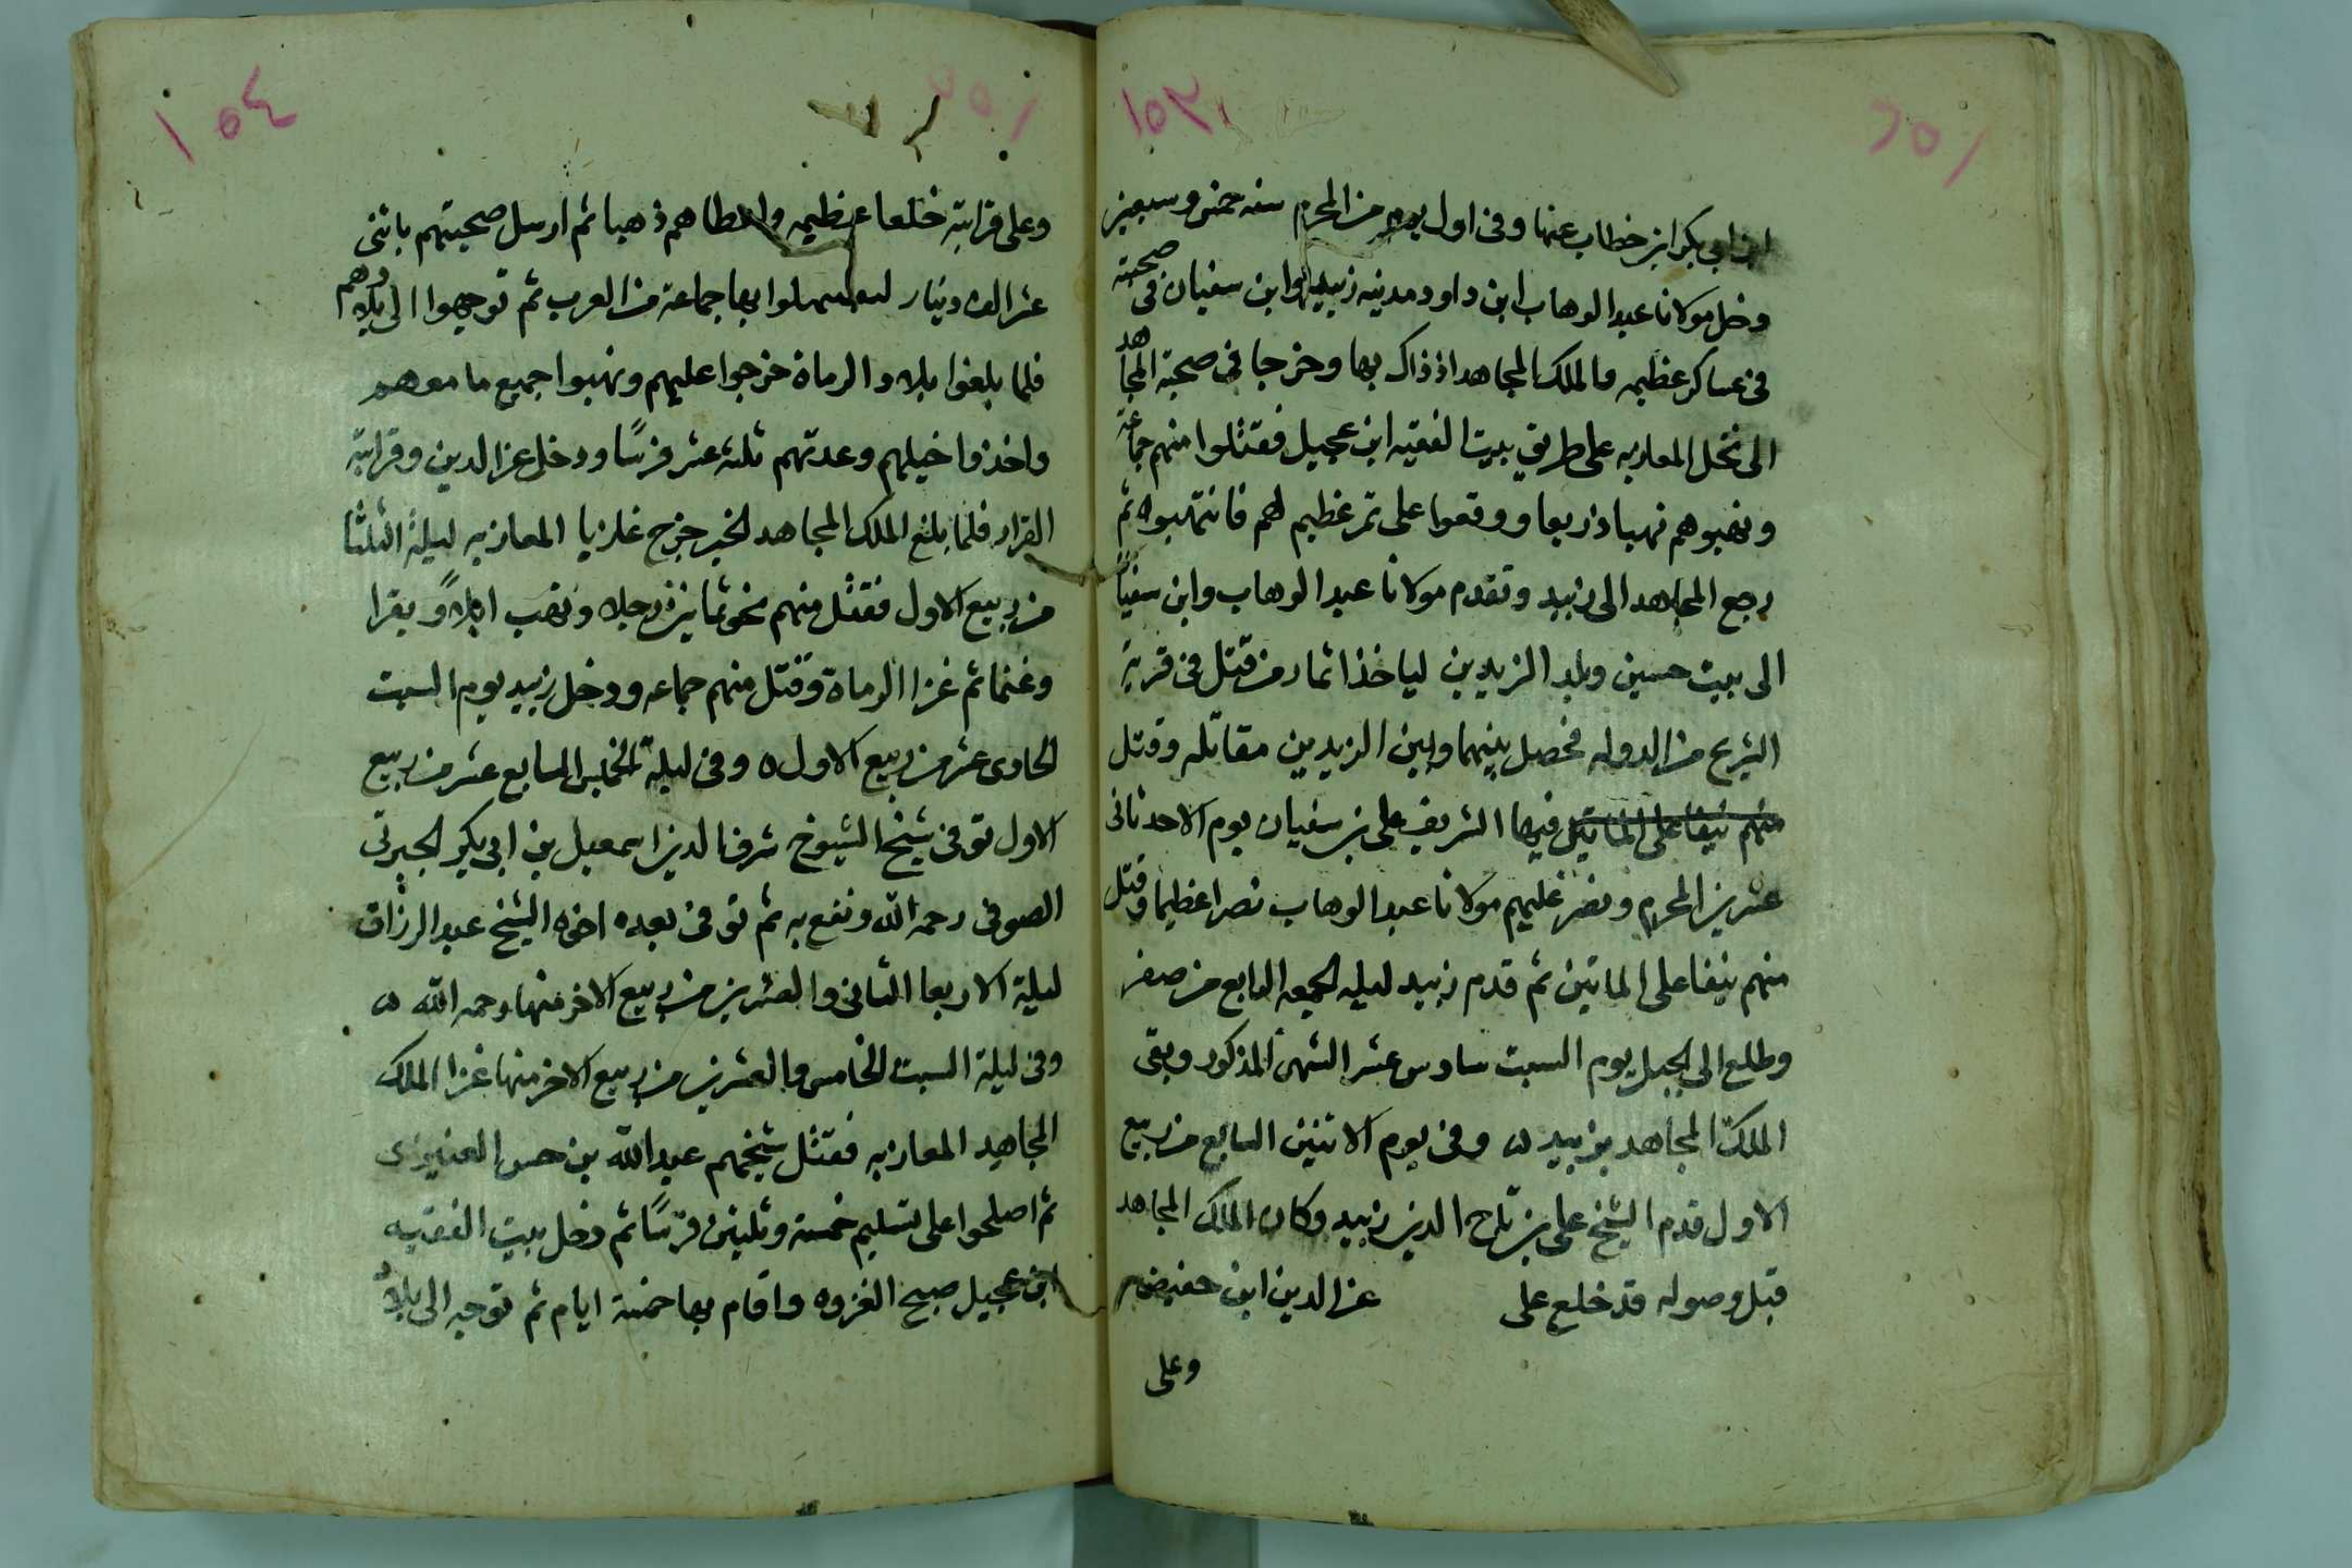 ١٥٣
ابن ابي بكر ابن خطاب عنها وفي اول يوم من المحرم سنه خمس وسبعين
دخل مولانا عبد الوهاب ابن داود مدينه زبيد وابن سفيان في صحبته
في عساكر عظيمه والملك المجاهد اذ ذاك بها وخرجا في صحبة المجاهد
الى نخل المعازبه على طريق بيت الفقيه ابن عجيل فقتلوا منهم جماعة
ونهبوهم نهبا ذريعا ووقعوا على تمر عظيم لهم فانتهبوه ثم
رجع المجاهد الى زبيد وتقدم مولانا عبد الوهاب وابن سفيان
الى بيت حسين وبلد الزيديين لياخذا ثار من قتل في قرية
الشريج من الدوله فحصل بينهما وبين الزيديين مقاتله وقتل
منهم نيفا على الماتين فيها الشريف على بن سفيان يوم الاحد ثاني
عشرين المحرم ونصر عليهم مولانا عبد الوهاب نصرا عظيما وقتل
منهم نيفا على الماتين ثم قدم زبيد ليله الجمعه الرابع من صفر
وطلع الى الجبل يوم السبت سادس عشر الشهر المذكور وبقى
الملك المجاهد بزبيد ٥ وفي يوم الاثنين السابع من ربيع
الاول قدم الشيخ على بن تاج الدين زبيد وكان الملك المجاهد
قبل وصوله قد خلع على عز الدين ابن حفيضه
وعلى
١٥٤
وعلى قرابته خلعا عظيمه واعطاهم ذهبا ثم ارسل صحبتهم باثنى
عشر الف دينار ليستميلوا بها جماعة من العرب ثم توجهوا الى بلادهم
فلما بلغوا بلاد الرماة خرجوا عليهم ونهبوا جميع ما معهم
واخذوا خيلهم وعدتهم ثلثة عشر فرسًا ودخل عز الدين وقرابته
القرار فلما بلغ الملك المجاهد الخبر خرج غازيا المعازبه ليلة الثلثا
من ربيع الاول فقتل منهم نحو ثمانين رجلا ونهب ابلاً وبقرا
وغنما ثم غزا الرماة وقتل منهم جماعه ودخل زبيد يوم السبت
الحادى عشر من ربيع الاول ٥ وفي ليلة الخميس السابع عشر من ربيع
الاول توفى شيخ الشيوخ شرف الدين اسمعيل بن ابي بكر الجبرتى
الصوفى رحمه الله ونفع به ثم توفى بعده اخوه الشيخ عبد الرزاق
ليلة الاربعا الثانى والعشرين من ربيع الاخر منها رحمه الله ٥
وفي ليلة السبت الخامس والعشرين من ربيع الاخر منها غزا الملك
المجاهد المعازبه فقتل شيخهم عبد الله بن حسن
ثم اصلحوا على تسليم خمسة وثلثين فرسًا ثم دخل بيت الفقيه
ابن عجيل صبح الغزوه واقام بها خمسة ايام ثم توجه الى بلاد